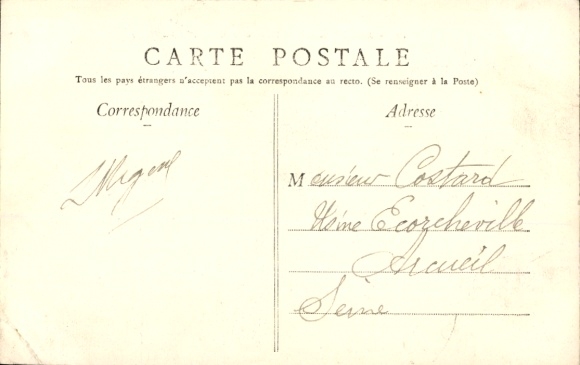 CARTE POSTALE
Tous les pays étrangers n'acceptent pas la correspondance au recto. (Se renseigner à la Poste)
Correspondance
Adresse
Monsieur Costard
Usine Ecorcheville
Arcueil
Seine